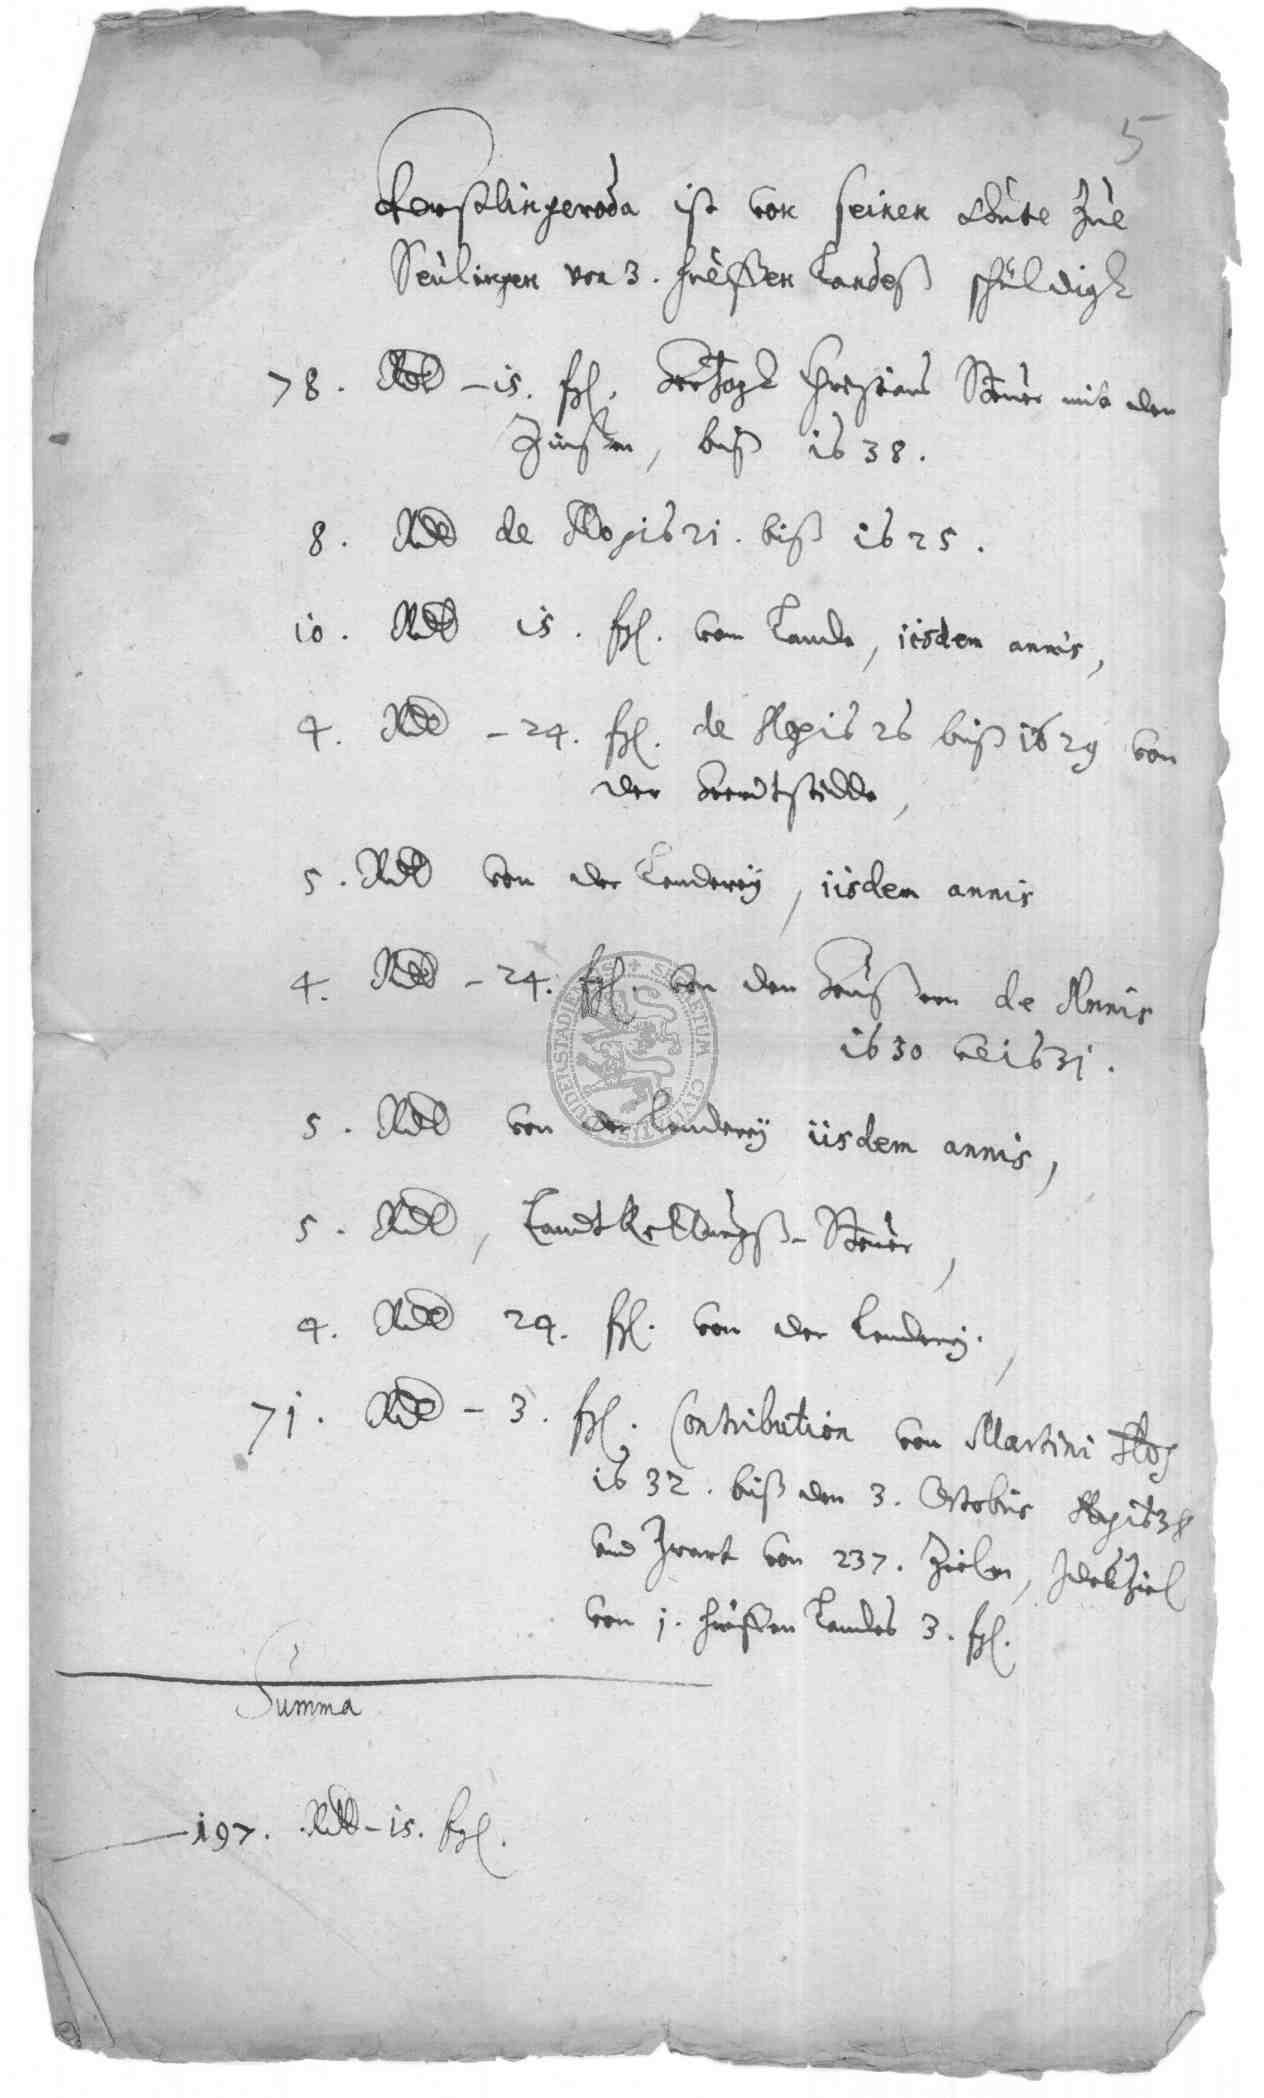 5
Kerstlingeroda ist von seinen Güte Zue
Seulingen von 3. hueffen Landeß schüldigk
78. Rthl – 15. fgl. Hertzogk Christians Steuer mit den
Zinßen, biß 1638.
8. Rthl de Ao 1621. biß 1625.
10. Rthl 15. fgl. vom Lande, iisdem annis,
4. Rthl – 24. fgl. de Ao 1626 biß 1629 von
der
5. Rthl von der Lenderey, iisdem annis
4. Rthl – 24. fgl. von den Heüßern de Annis
1630 1631.
5. Rthl von der Lenderey iisdem annis,
5. Rthl, Landt Steuer,
4. Rthl 24. fgl. von der Lenderey.
71. Rthl – 3. fgl. Contribution von Martini Ao
1632. biß den 3. Octobris Ao 1638
und Zwart von 237. Zielen, Jdes Ziel
von 1. hueffen Landes 3. fgl.
Summa
197. Rthl – 15. fgl.
SECRETUM CIVITATIS DUDERSTADIENSIS